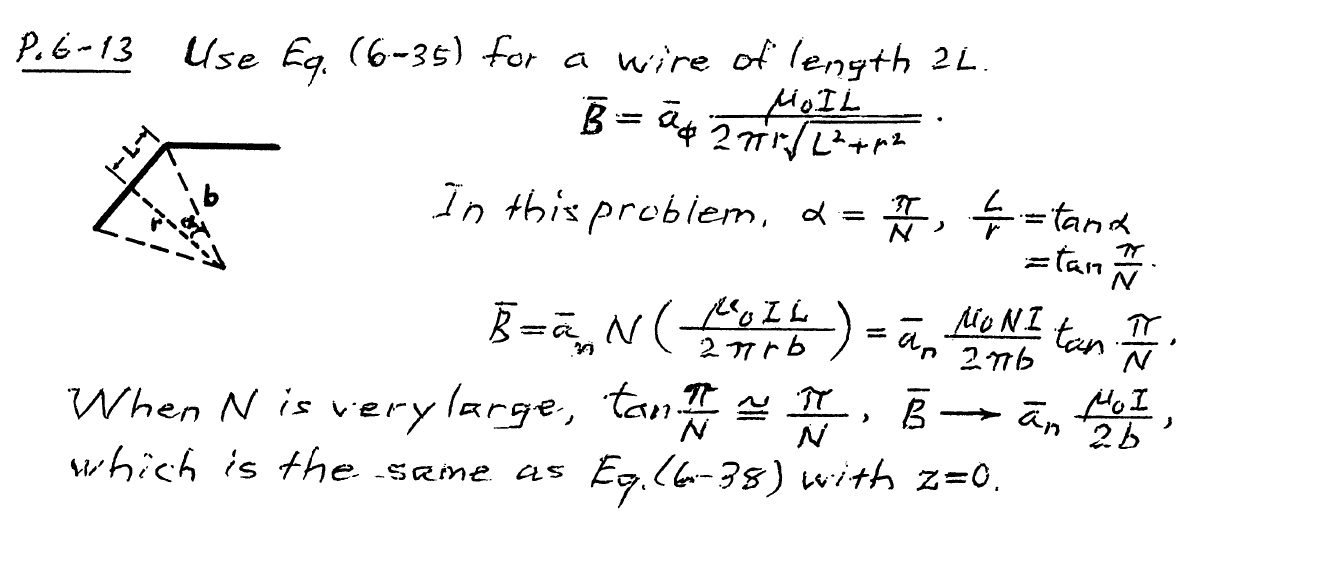 P.6-13 Use Eq. (6-35) for a wire of length 2L.
B̄ = ā_ϕ μ₀IL / 2πr√(L²+r²) .
L
b
r
α
In this problem, α = π/N, L/r = tan α
= tan π/N.
B̄ = ā_n N (μ₀IL / 2πrb) = ā_n μ₀NI / 2πb tan π/N.
When N is very large, tan π/N ≅ π/N, B̄ → ā_n μ₀I / 2b,
which is the same as Eq. (6-38) with z=0.